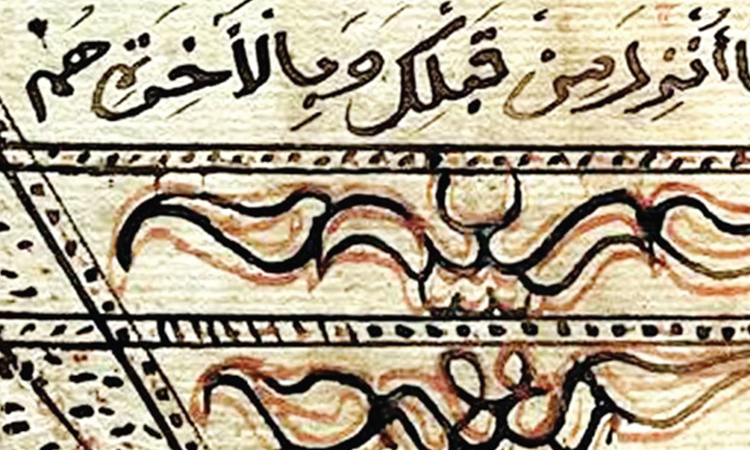 ا أُنْزِلَ مِنْ قَبْلِكَ وَبِالْأَخِرَةِ هُمْ